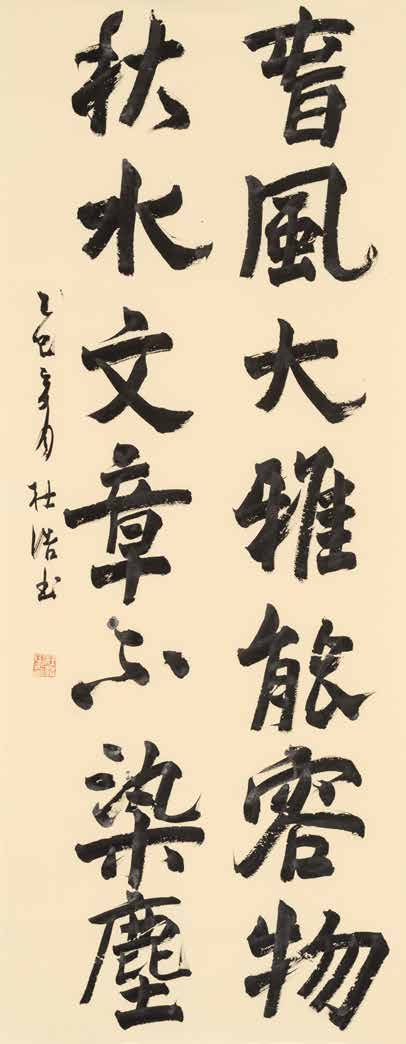 春風大雅能容物
秋水文章不染塵
乙巳年夏月杜浩书